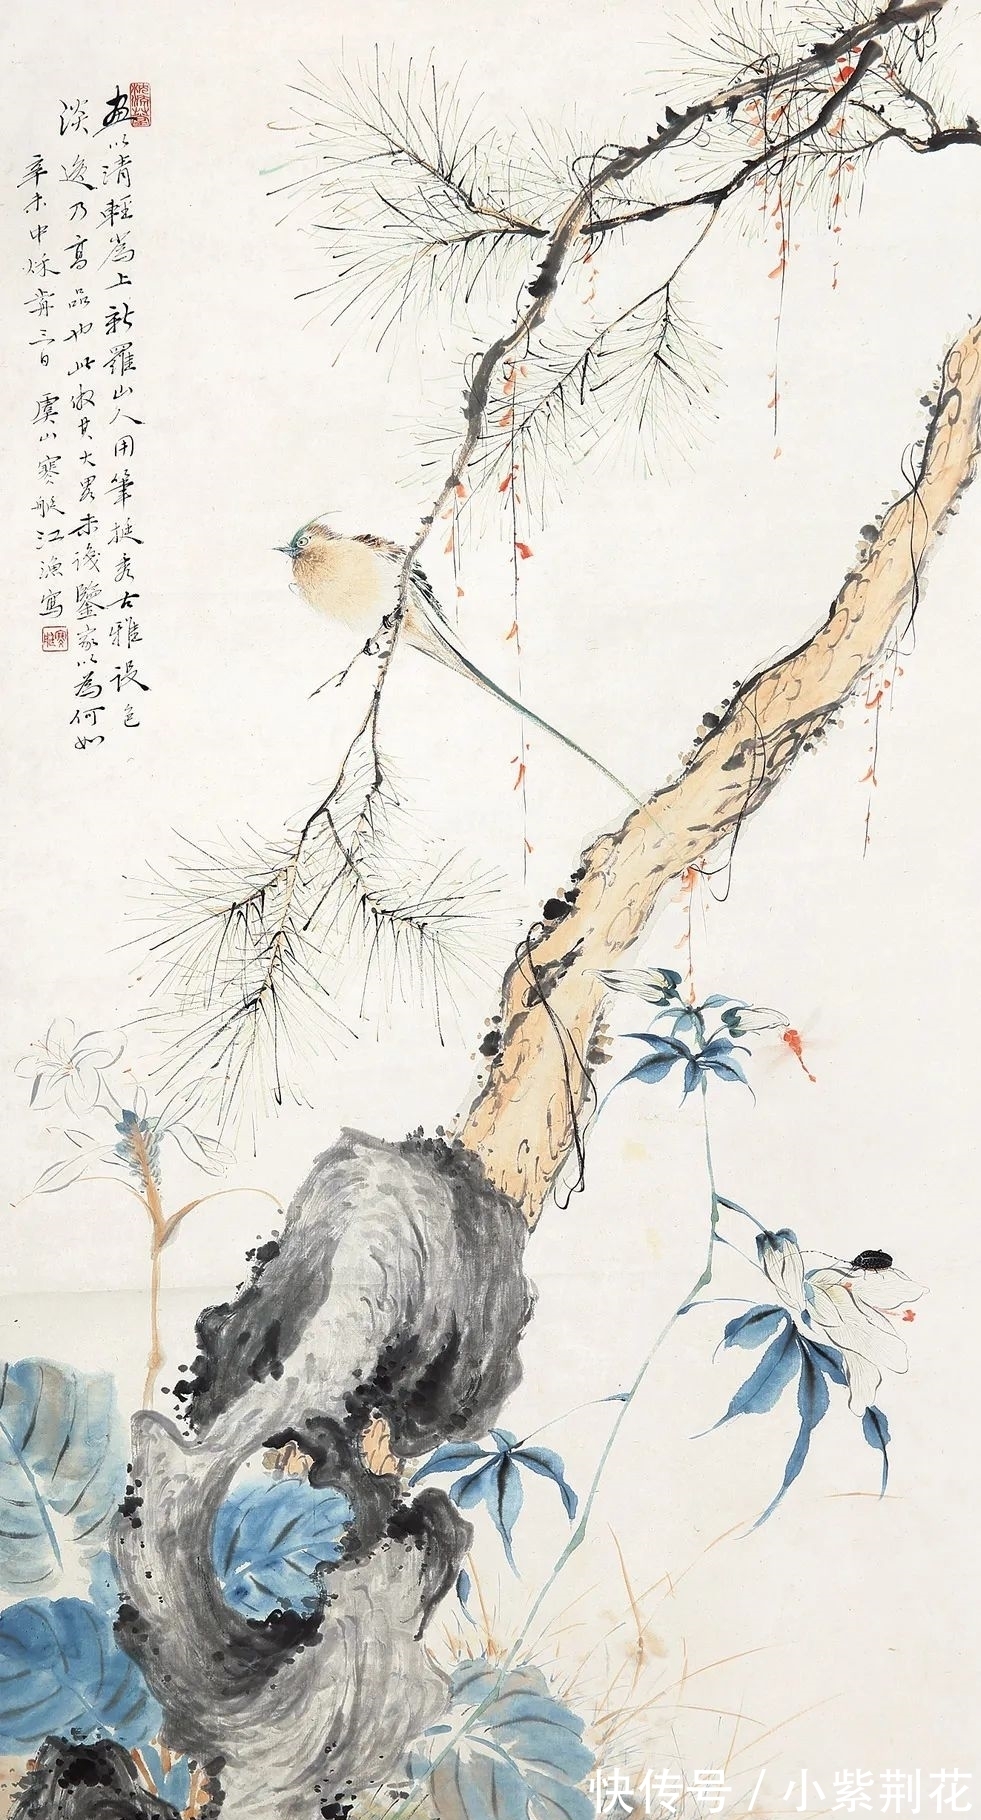 画以清輕為上新羅山人用筆挺秀古雅設色
淡逸乃高品也此仿其大畧未識鑒家以為何如
辛未中秋前三日 虞山寒艇江漁寫
快传号 / 小紫荆花